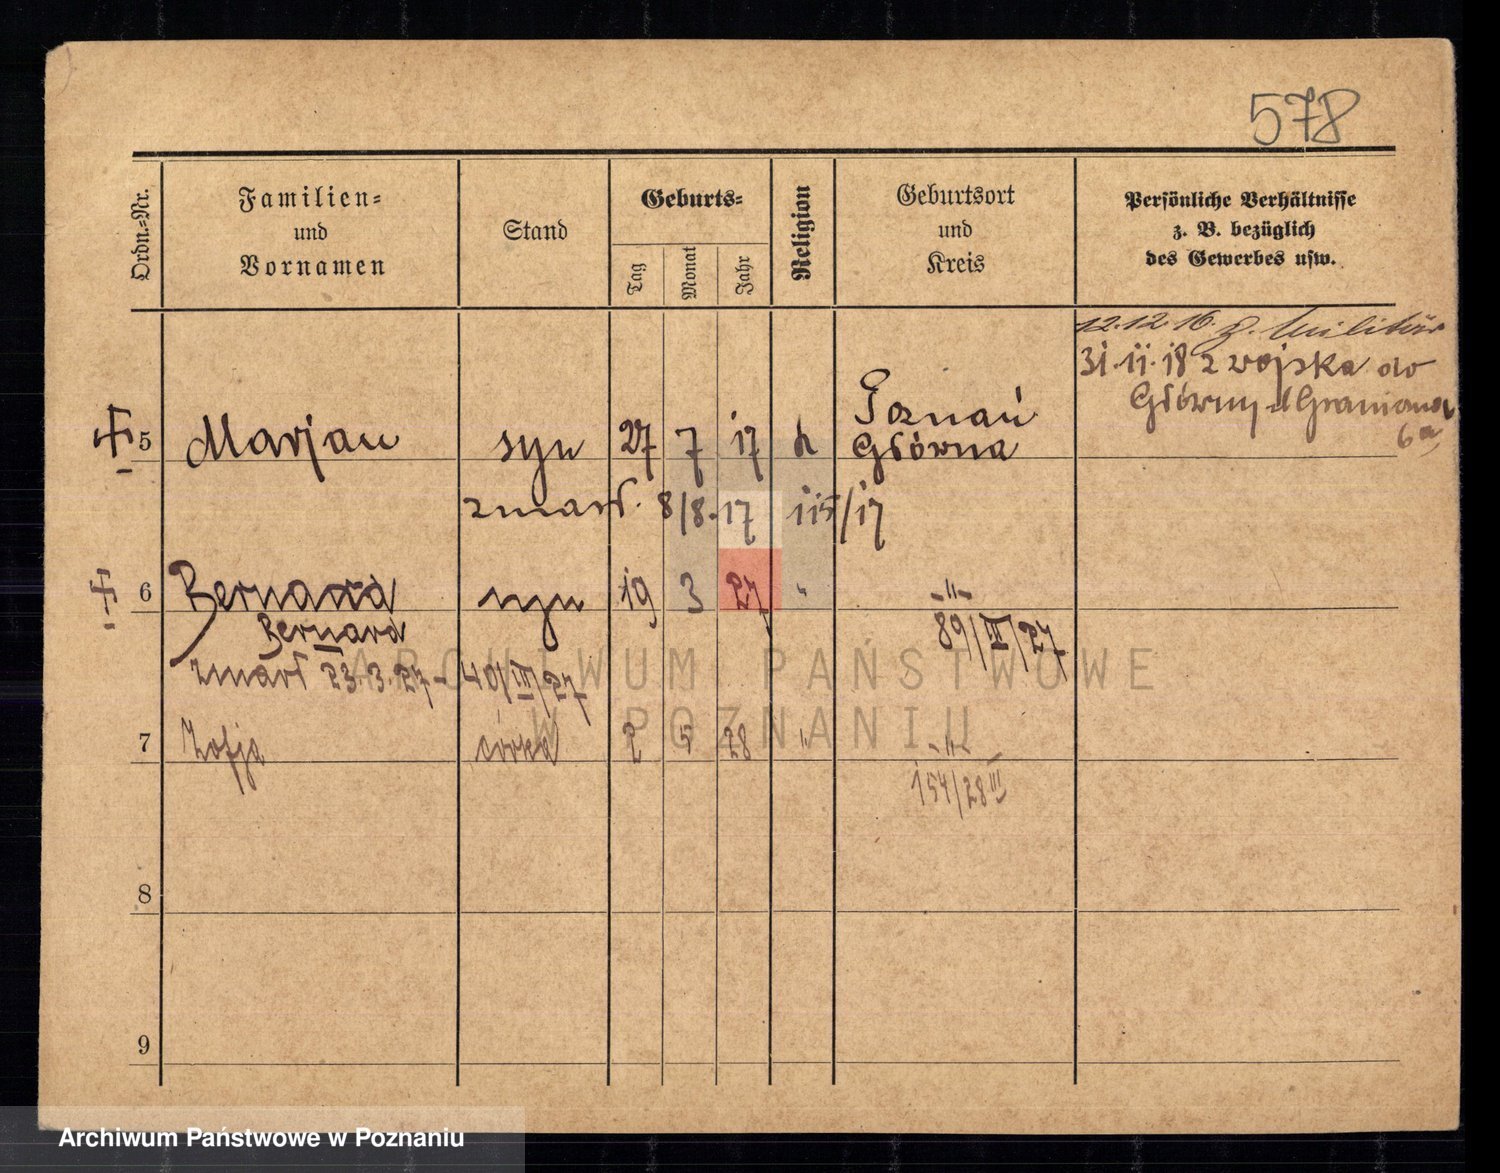 578
Ordn.-Nr.
Familien-
und
Vornamen
Stand
Geburts-
Tag
Monat
Jahr
Religion
Geburtsort
und
Kreis
Persönliche Verhältnisse
z. B. bezüglich
des Gewerbes usw.
12.12.16. z. Militär
31.11.18 z wojska do
Główny
6a
5 Marjan syn 27 7 17 k Poznań
Główna
zmarł. 8/8.17 115/17
6 Bernard syn 19 3 27 " -"-
Bernard 89/III/27
zmarł 23.3.27 - 40/III/27
7 Zofja córka 2 5 28 " -"-
154/28 III
8
9
ARCHIWUM PAŃSTWOWE
W POZNANIU
Archiwum Państwowe w Poznaniu